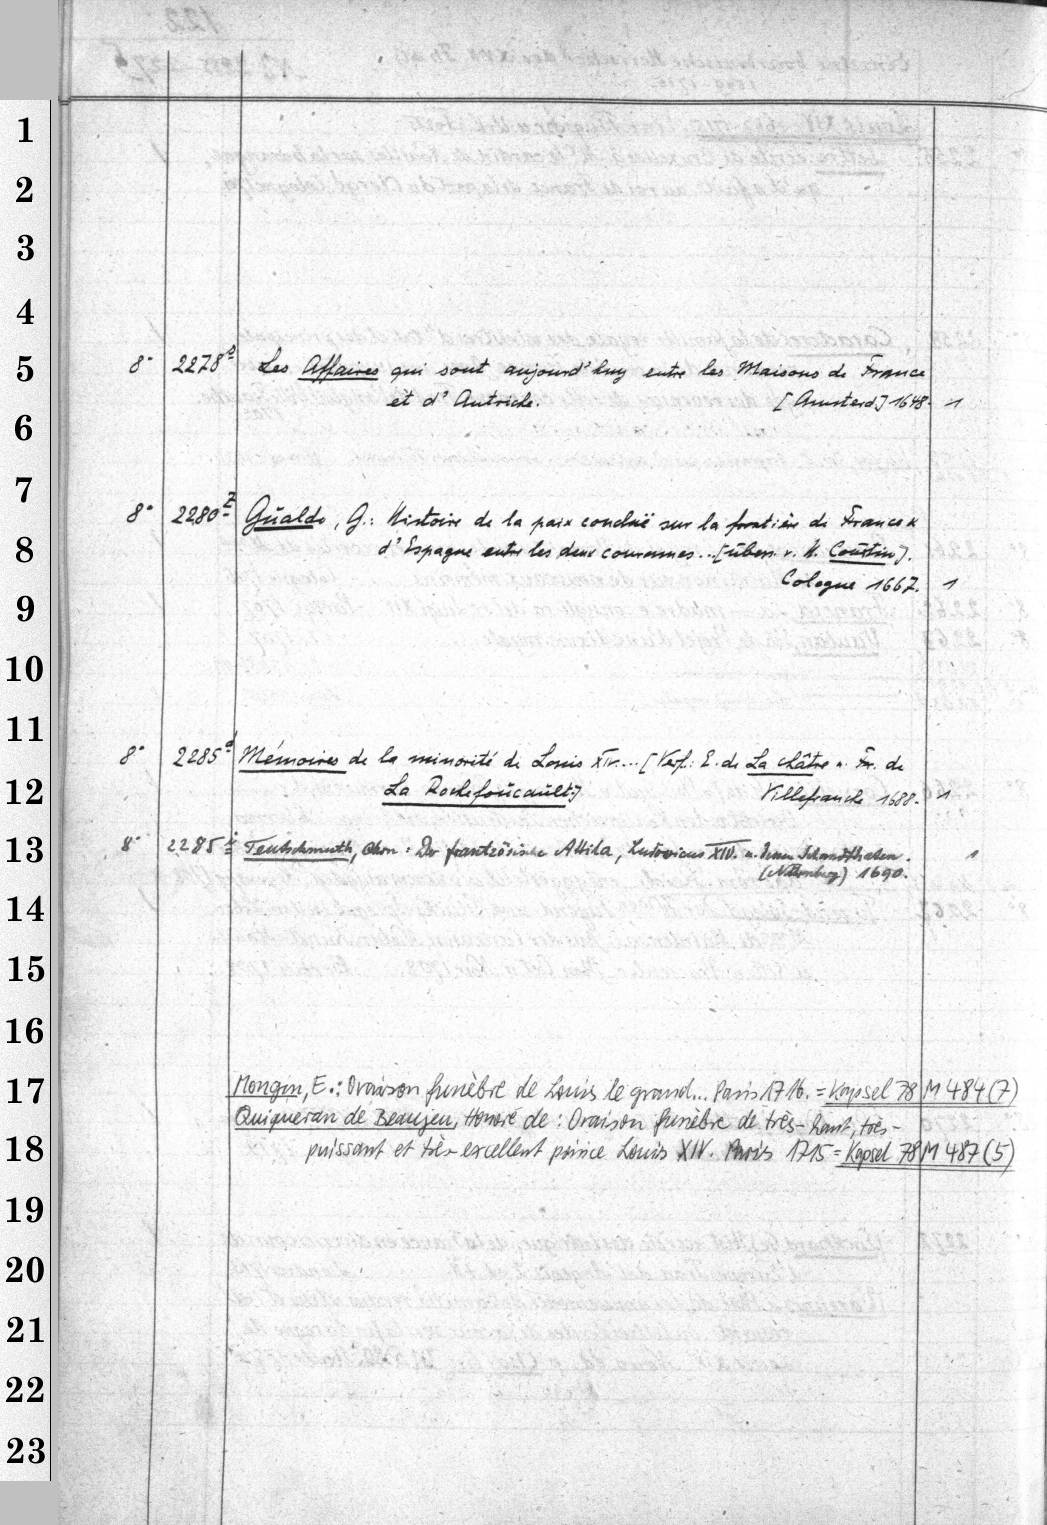 1
2
3
4
5 8° 2278ᵇ Les Affaires qui sont aujourd'huy entre les Maisons de France
et d'Autriche. [Amsterd.] 1648. 1
6
7
8° 2280ᶻ Gualdo, G.: Histoire de la paix concluë sur la frontière de France &
8 d'Espagne entre les deux couronnes... [übers. v. H. Courtin].
Cologne 1667. 1
9
10
11
8° 2285ᵈ Mémoires de la minorité de Louis XIV... [Verf.: E. de La Châtre u. Fr. de
12 La Rochefoucault.] Villefranche 1688. 1
13 8° 2285ⁱ Teutschmuth, Chrn: Der frantzösische Attila, Ludovicus XIV. u. 
(Nürnberg) 1690. 1
14
15
16
17 Mongin, E.: Oraison funèbre de Louis le grand... Paris 1716. = Kapsel 78 M 484 (7)
Quiqueran de Beaujeu, Honoré de: Oraison funèbre de très-haut, très-
18 puissant et très-excellent prince Louis XIV. Paris 1715 = Kapsel 78 M 487 (5)
19
20
21
22
23